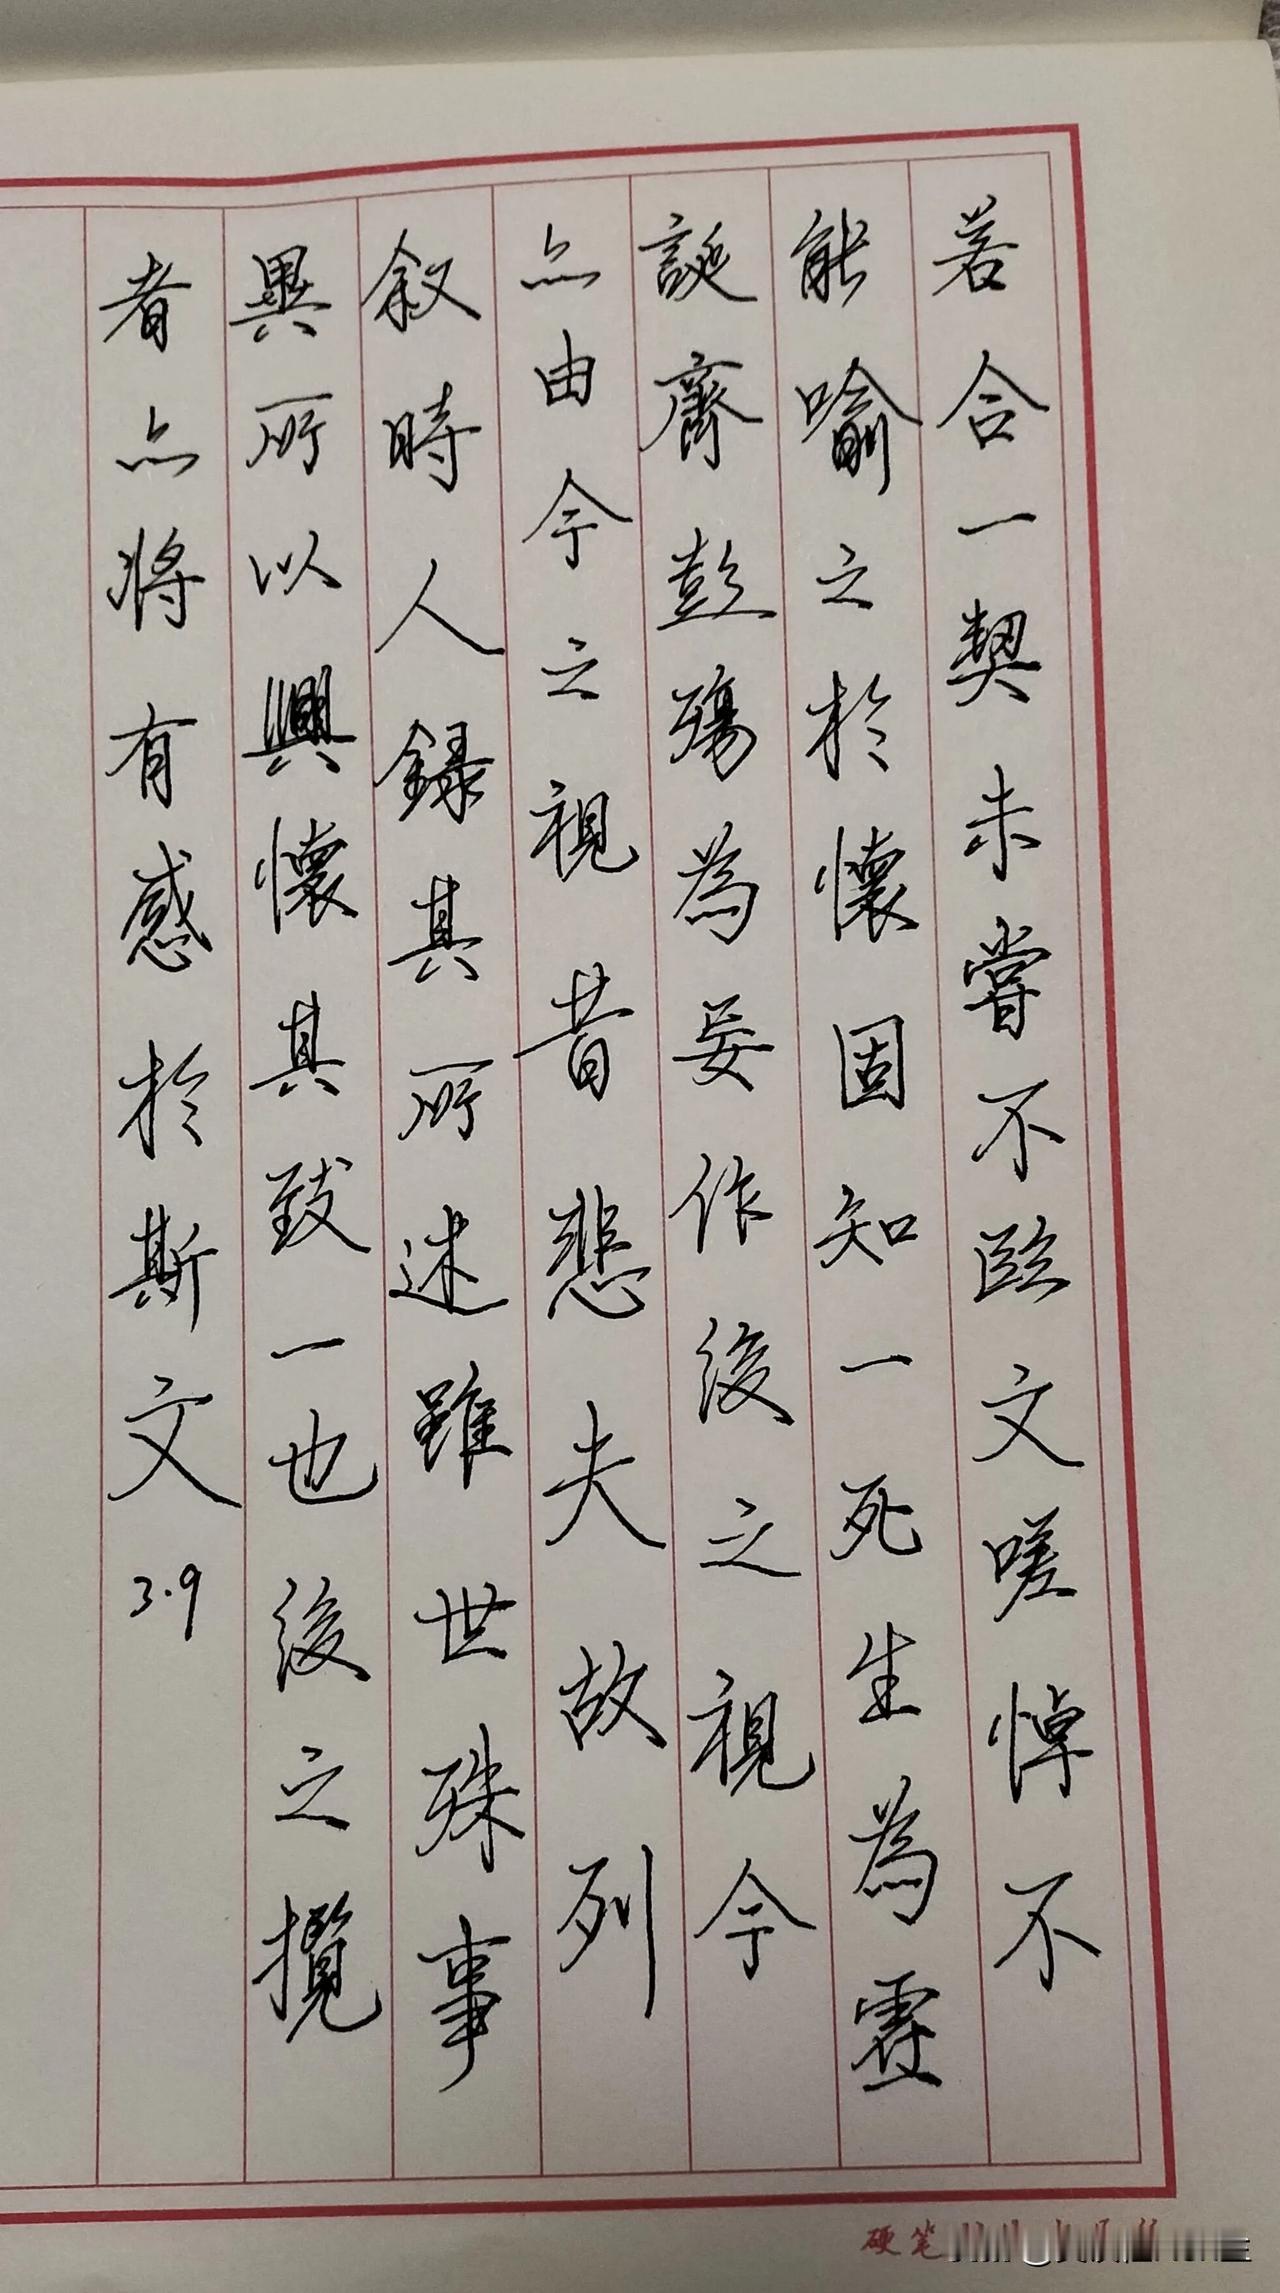 若合一契未嘗不臨文嗟悼不
能喻之於懷固知一死生為虛
誕齊彭殤為妄作後之視今
亦由今之視昔悲夫故列
叙時人錄其所述雖世殊事
異所以興懷其致一也後之攬
者亦將有感於斯文
3.9
硬笔